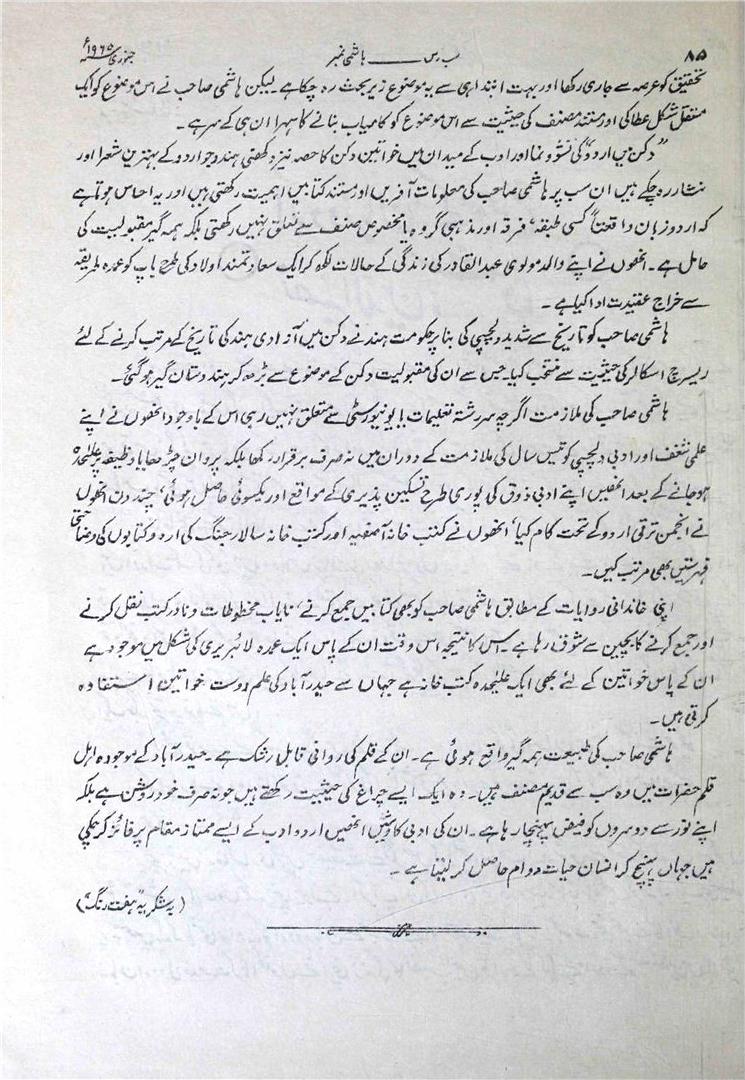 ۸۵
سب رس ـــــــ ہاشمی نمبر
جنوری ۱۹۶۵ء
تحقیق کو عرصہ سے جاری رکھا اور بہت ابتدا ہی سے یہ موضوع زیر بحث رہ چکا ہے۔ لیکن ہاشمی صاحب نے اس موضوع کو ایک
مستقل شکل عطا کی اور مستند مصنف کی حیثیت سے اس موضوع کو کامیاب بنانے کا سہرا ان ہی کے سر ہے۔
”دکن میں اردو“ کی نشو و نما اور ادب کے میدان میں خواتین دکن کا حصہ نیز دکھنی ہندو جو اردو کے بہترین شعرا اور
نثار رہ چکے ہیں ان سب پر ہاشمی صاحب کی معلومات آفریں اور مستند کتابیں اہمیت رکھتی ہیں اور یہ احساس ہوتا ہے
کہ اردو زبان واقعتاً کسی طبقہ‘ فرقہ اور مذہبی گروہ یا مخصوص صنف سے تعلق نہیں رکھتی بلکہ ہمہ گیر مقبولیت کی
حامل ہے۔ انھوں نے اپنے والد مولوی عبدالقادر کی زندگی کے حالات لکھ کر ایک سعادتمند اولاد کی طرح باپ کو عمدہ طریقہ
سے خراج عقیدت ادا کیا ہے۔
ہاشمی صاحب کو تاریخ سے شدید دلچسپی کی بنا پر حکومت ہند نے دکن میں آزادی ہند کی تاریخ کے مرتب کرنے کے لئے
ریسرچ اسکالر کی حیثیت سے منتخب کیا۔ جس سے ان کی مقبولیت دکن کے موضوع سے بڑھ کر ہندوستان گیر ہو گئی۔
ہاشمی صاحب کی ملازمت اگرچہ سررشتہ تعلیمات یا یونیورسٹی سے متعلق نہیں رہی اس کے باوجود انھوں نے اپنے
علمی شغف اور ادبی دلچسپی کو تیس سال کی ملازمت کے دوران میں نہ صرف برقرار رکھا بلکہ پروان چڑھایا۔ وظیفہ پر علیٰحدہ
ہو جانے کے بعد انھیں اپنے ادبی ذوق کی پوری طرح تسکین پذیری کے مواقع اور یکسوئی حاصل ہوئی‘ چند دن انھوں
نے انجمن ترقی اردو کے تحت کام کیا‘ انھوں نے کتب خانہ آصفیہ اور کتب خانہ سالار جنگ کی اردو کتابوں کی وضاحتی
فہرستیں بھی مرتب کیں۔
اپنی خاندانی روایات کے مطابق ہاشمی صاحب کو بھی کتابیں جمع کرنے‘ نایاب مخطوطات و نادر کتب نقل کرنے
اور جمع کرنے کا بچپن سے شوق رہا ہے۔ اس کا نتیجہ اس وقت ان کے پاس ایک عمدہ لائبریری کی شکل میں موجود ہے
ان کے پاس خواتین کے لئے بھی ایک علیٰحدہ کتب خانہ ہے جہاں سے حیدرآباد کی علم دوست خواتین استفادہ
کرتی ہیں۔
ہاشمی صاحب کی طبیعت ہمہ گیر واقع ہوئی ہے۔ ان کے قلم کی روانی قابل رشک ہے۔ حیدرآباد کے موجودہ اہل
قلم حضرات میں وہ سب سے قدیم مصنف ہیں۔ وہ ایک ایسے چراغ کی حیثیت رکھتے ہیں جو نہ صرف خود روشن ہے بلکہ
اپنے نور سے دوسروں کو فیض پہنچا رہا ہے۔ ان کی ادبی کاوشیں انھیں اردو ادب کے ایسے ممتاز مقام پر فائز کر چکی
ہیں جہاں پہنچ کر انسان حیات دوام حاصل کر لیتا ہے۔
(بہ شکریہ ”ہفت رنگ“)